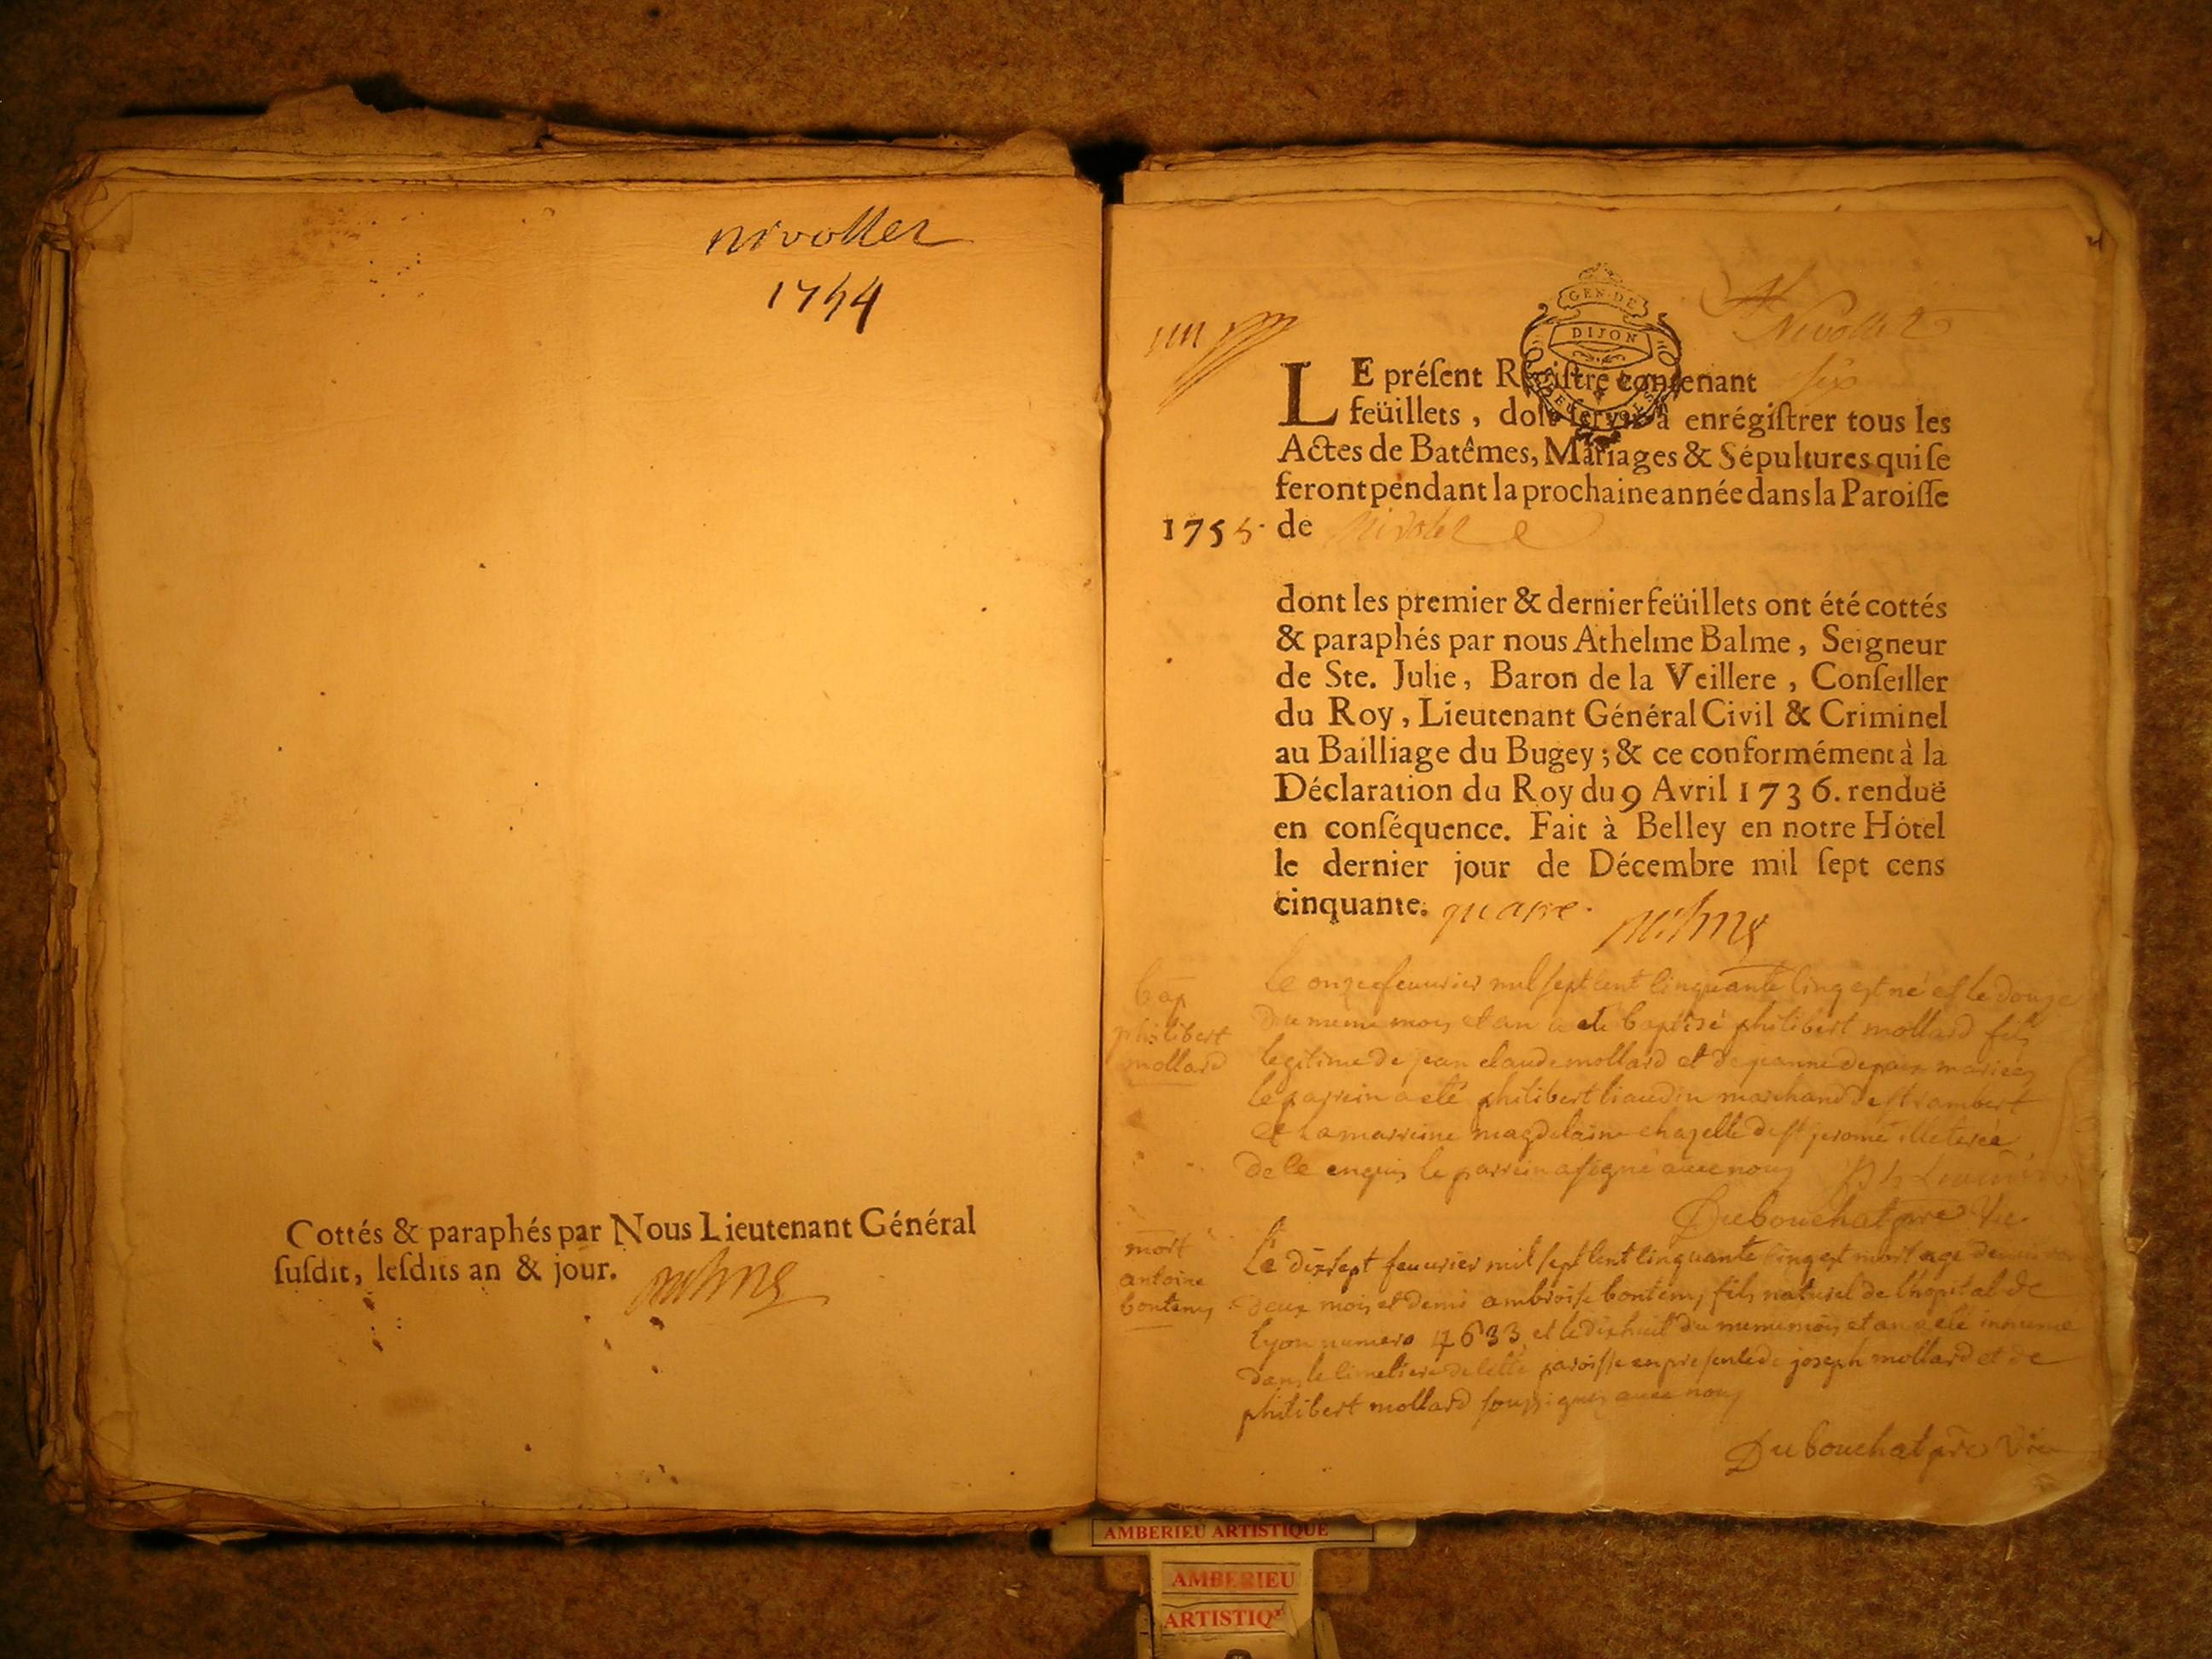 nivollet
1754
Cottés & paraphés par Nous Lieutenant Général
suſdit, leſdits an & jour.
GEN·DE
DIJON
Nivollet
LE préſent Regiſtre contenant six
feüillets, doit ſervir à enrégiſtrer tous les
Actes de Batêmes, Mariages & Sépultures qui ſe
feront pendant la prochaine année dans la Paroiſſe
1755. de Nivolet
dont les premier & dernier feüillets ont été cottés
& paraphés par nous Athelme Balme, Seigneur
de Ste. Julie, Baron de la Veillere, Conſeiller
du Roy, Lieutenant Général Civil & Criminel
au Bailliage du Bugey; & ce conformément à la
Déclaration du Roy du 9 Avril 1736. renduë
en conſéquence. Fait à Belley en notre Hôtel
le dernier jour de Décembre mil ſept cens
cinquante. quatre.
bap
philibert
mollard
le onze feuurier mil sept cent cinquante cinq est né et le douze
du meme mois et an a eté baptisé philibert mollard fils
legitime de jean claude mollard et de jeanne mariés
le parrein a eté philibert liaudin marchand de st rambert
et la marreine magdelaine chazelle de st jerome illeterée
de ce enquis le parrein a signé auec nous
Dubouchat pre vic
mort
antoine
bontems
Le dixsept feuurier mil sept cent cinquante cinq est mort agé de
deux mois et demi ambroise bontems fils naturel de l'hopital de
lyon numero 17633 et le dixhuit du meme mois et an a eté inhumé
dans le cimetiere de cette paroisse en presence de joseph mollard et de
philibert mollard soussignes auec nous
Dubouchat pre vic
AMBERIEU ARTISTIQUE
AMBERIEU
ARTISTIQ